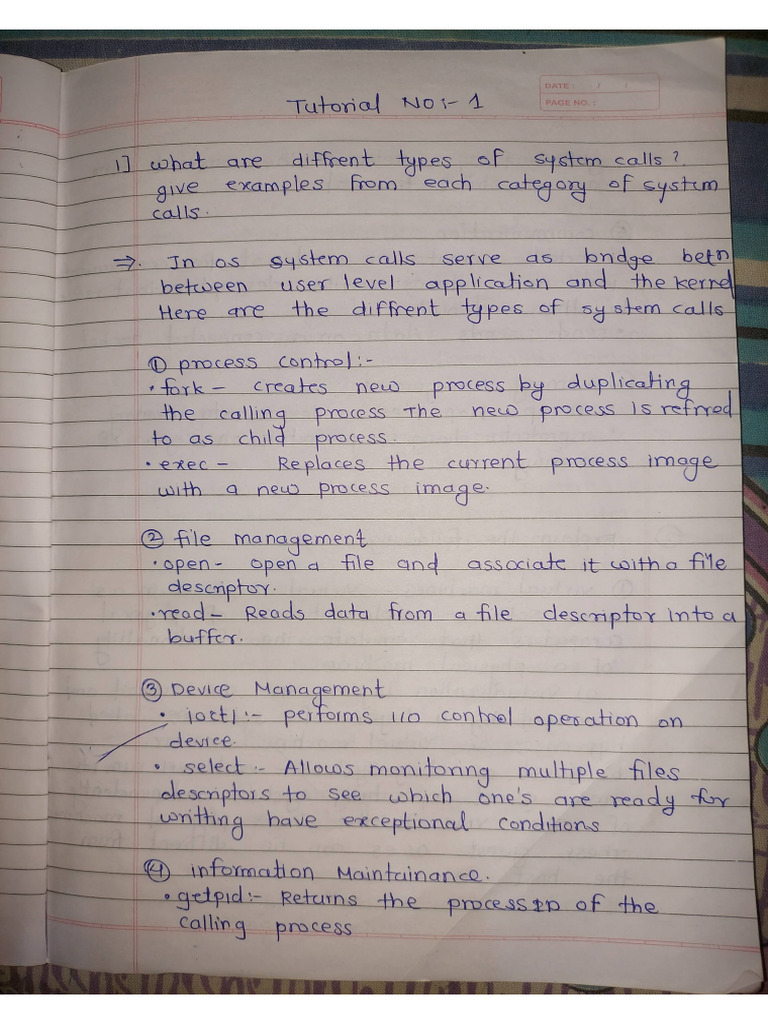 DATE : / /
PAGE NO. :
Tutorial NO:- 1
1] what are diffrent types of system calls?
give examples from each category of system
calls.
⇒. In os system calls serve as bridge betn
between user level application and the kernel
Here are the diffrent types of system calls
① process control:-
• fork - creates new process by duplicating
the calling process The new process is refrred
to as child process.
• exec - Replaces the current process image
with a new process image.
② file management
• open - open a file and associate it with a file
descriptor.
• read - Reads data from a file descriptor into a
buffer.
③ Device Management
• ioctl :- performs I/O control operation on
device.
• select :- Allows monitoring multiple files
descriptors to see which one's are ready for
writting have exceptional conditions
④ information Maintainance.
• getpid:- Returns the process ID of the
calling process